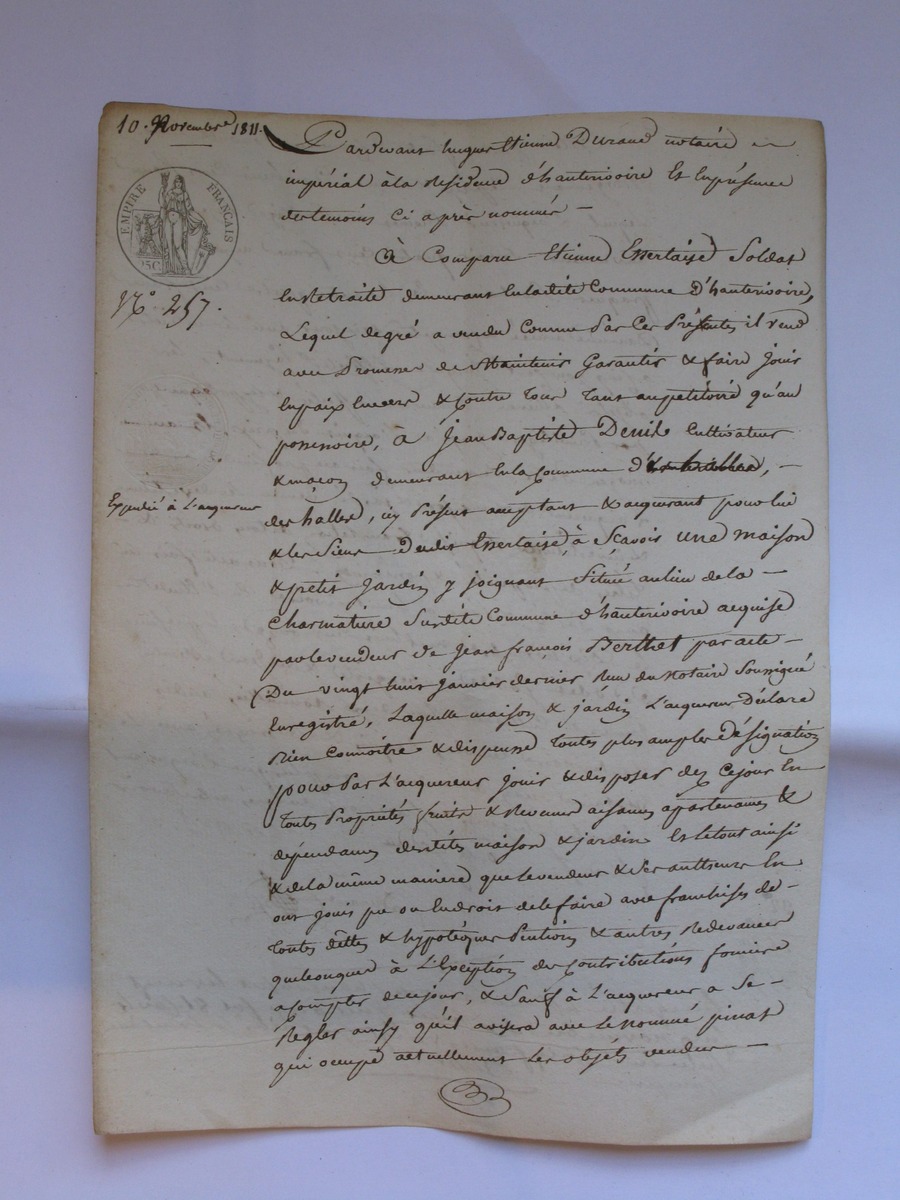 10. Novembre 1811.
Pardevant hugues Etienne Durand notaire
impérial à la Residence d'hauterivoire Et En présence
des temoins Ci après nommés —
EMPIRE FRANÇAIS
75C
à Comparu Etienne Essertaise Soldat
N.° 257.
En Retraite demeurant En ladite Commune D'hauterivoire,
Lequel de gré a vendu Comme Par Ces Présentes il vend
avec Promesse de Maintenir Garantir & faire jouir
En paix Envers & Contre Tous Tant au petitoire qu'au
possessoire, à Jean Baptiste Denis Cultivateur
& maçon demeurant En la Commune
Expedié à L'acquereur
des halles, icy Présent acceptant & acquerant pour lui
& les Siens dudit Essertaise à Sçavoir une maison
& petit jardin y joignant Situé au lieu de la —
Charmatiere Susdite Commune d'hauterivoire acquise
par le vendeur de Jean françois Berthet par acte —
Du vingt huit Janvier dernier Reçu du Notaire Soussigné
Enregistré, Laquelle maison & jardin L'acquereur Déclare
bien Connoitre & dispense Toutes plus amples désignation
pour Par L'acquereur jouir & disposer dez Ce jour En
Toutes Propriétés fruits & Revenus aisances apartenances &
dépendances desdites maison & jardin Et le tout ainsi
& de la même maniere que le vendeur & Ses autheurs En
ont jouis pu ou En droit de le faire avec franchises de —
Toutes dettes & hypotéques Pention & autres Redevances
quelconques à L'Exception des Contributions fonciere
a Compter de ce jour, & Sauf à L'acquereur a Se —
Regler ainsy qu'il avisera avec le nommé pinat
qui occupe actuellement Les objets vendus —